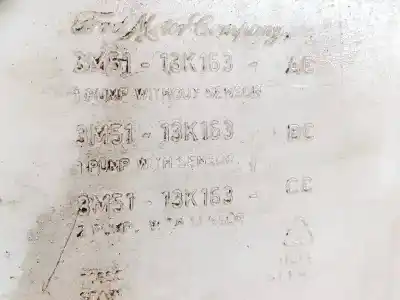 Ford Motor Company
3M51 - 13K163 - AC
1 PUMP WITHOUT SENSOR
3M51 - 13K163 BC
1 PUMP WITH SENSOR
3M51 - 13K163 - CC
2 PUMP WITH SENSOR